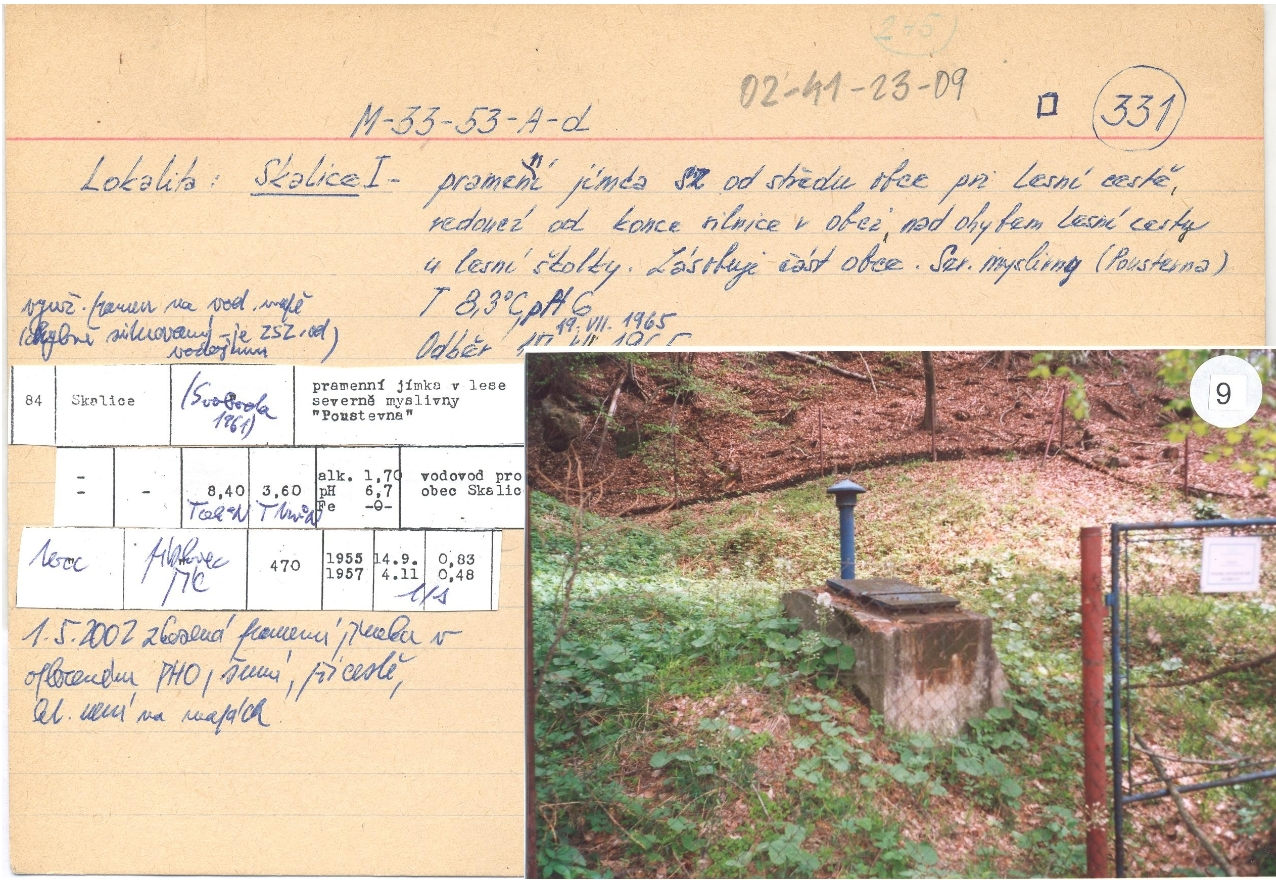 275
02-41-23-09
331
M-33-53-A-d
Lokalita: Skalice I - pramenní jímka SZ od středu obce při lesní cestě,
vedoucí od konce silnice v obci, nad ohybem lesní cesty
u lesní školky. Zásobuje část obce. Sev. myslivny (Pousterna)
T 8,3°C, pH 6
19. VII. 1965
Odběr
pramen na vod. mapě
(chybně situovaný - je ZSZ. od
vodojemu)
84 Skalice (Svoboda 1961) pramenní jímka v lese
severně myslivny
"Poustevna"
- - 8,40 3,60 alk. 1,70 vodovod pro
- pH 6,7 obec Skalic
Fe -0-
470 1955 14.9. 0,83
1957 4.11 0,48
l/s
1.5.2002 pramenní jímka v
oploceném PHO, šumí, při cestě,
není na mapách
9